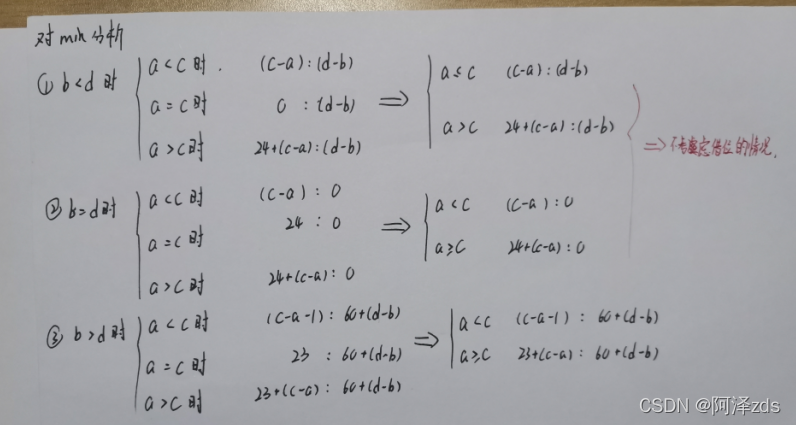 对min分析
① b<d时 a<c时. (c-a):(d-b)
a=c时 0:(d-b)
a>c时 24+(c-a):(d-b)
⇒ a≤c (c-a):(d-b)
a>c 24+(c-a):(d-b)
⇒不考虑借位的情况.
② b=d时 a<c时 (c-a):0
a=c时 24:0
a>c时 24+(c-a):0
⇒ a<c (c-a):0
a≥c 24+(c-a):0
③ b>d时 a<c时 (c-a-1):60+(d-b)
a=c时 23:60+(d-b)
a>c时 23+(c-a):60+(d-b)
⇒ a<c (c-a-1):60+(d-b)
a≥c 23+(c-a):60+(d-b)
CSDN @阿泽zds